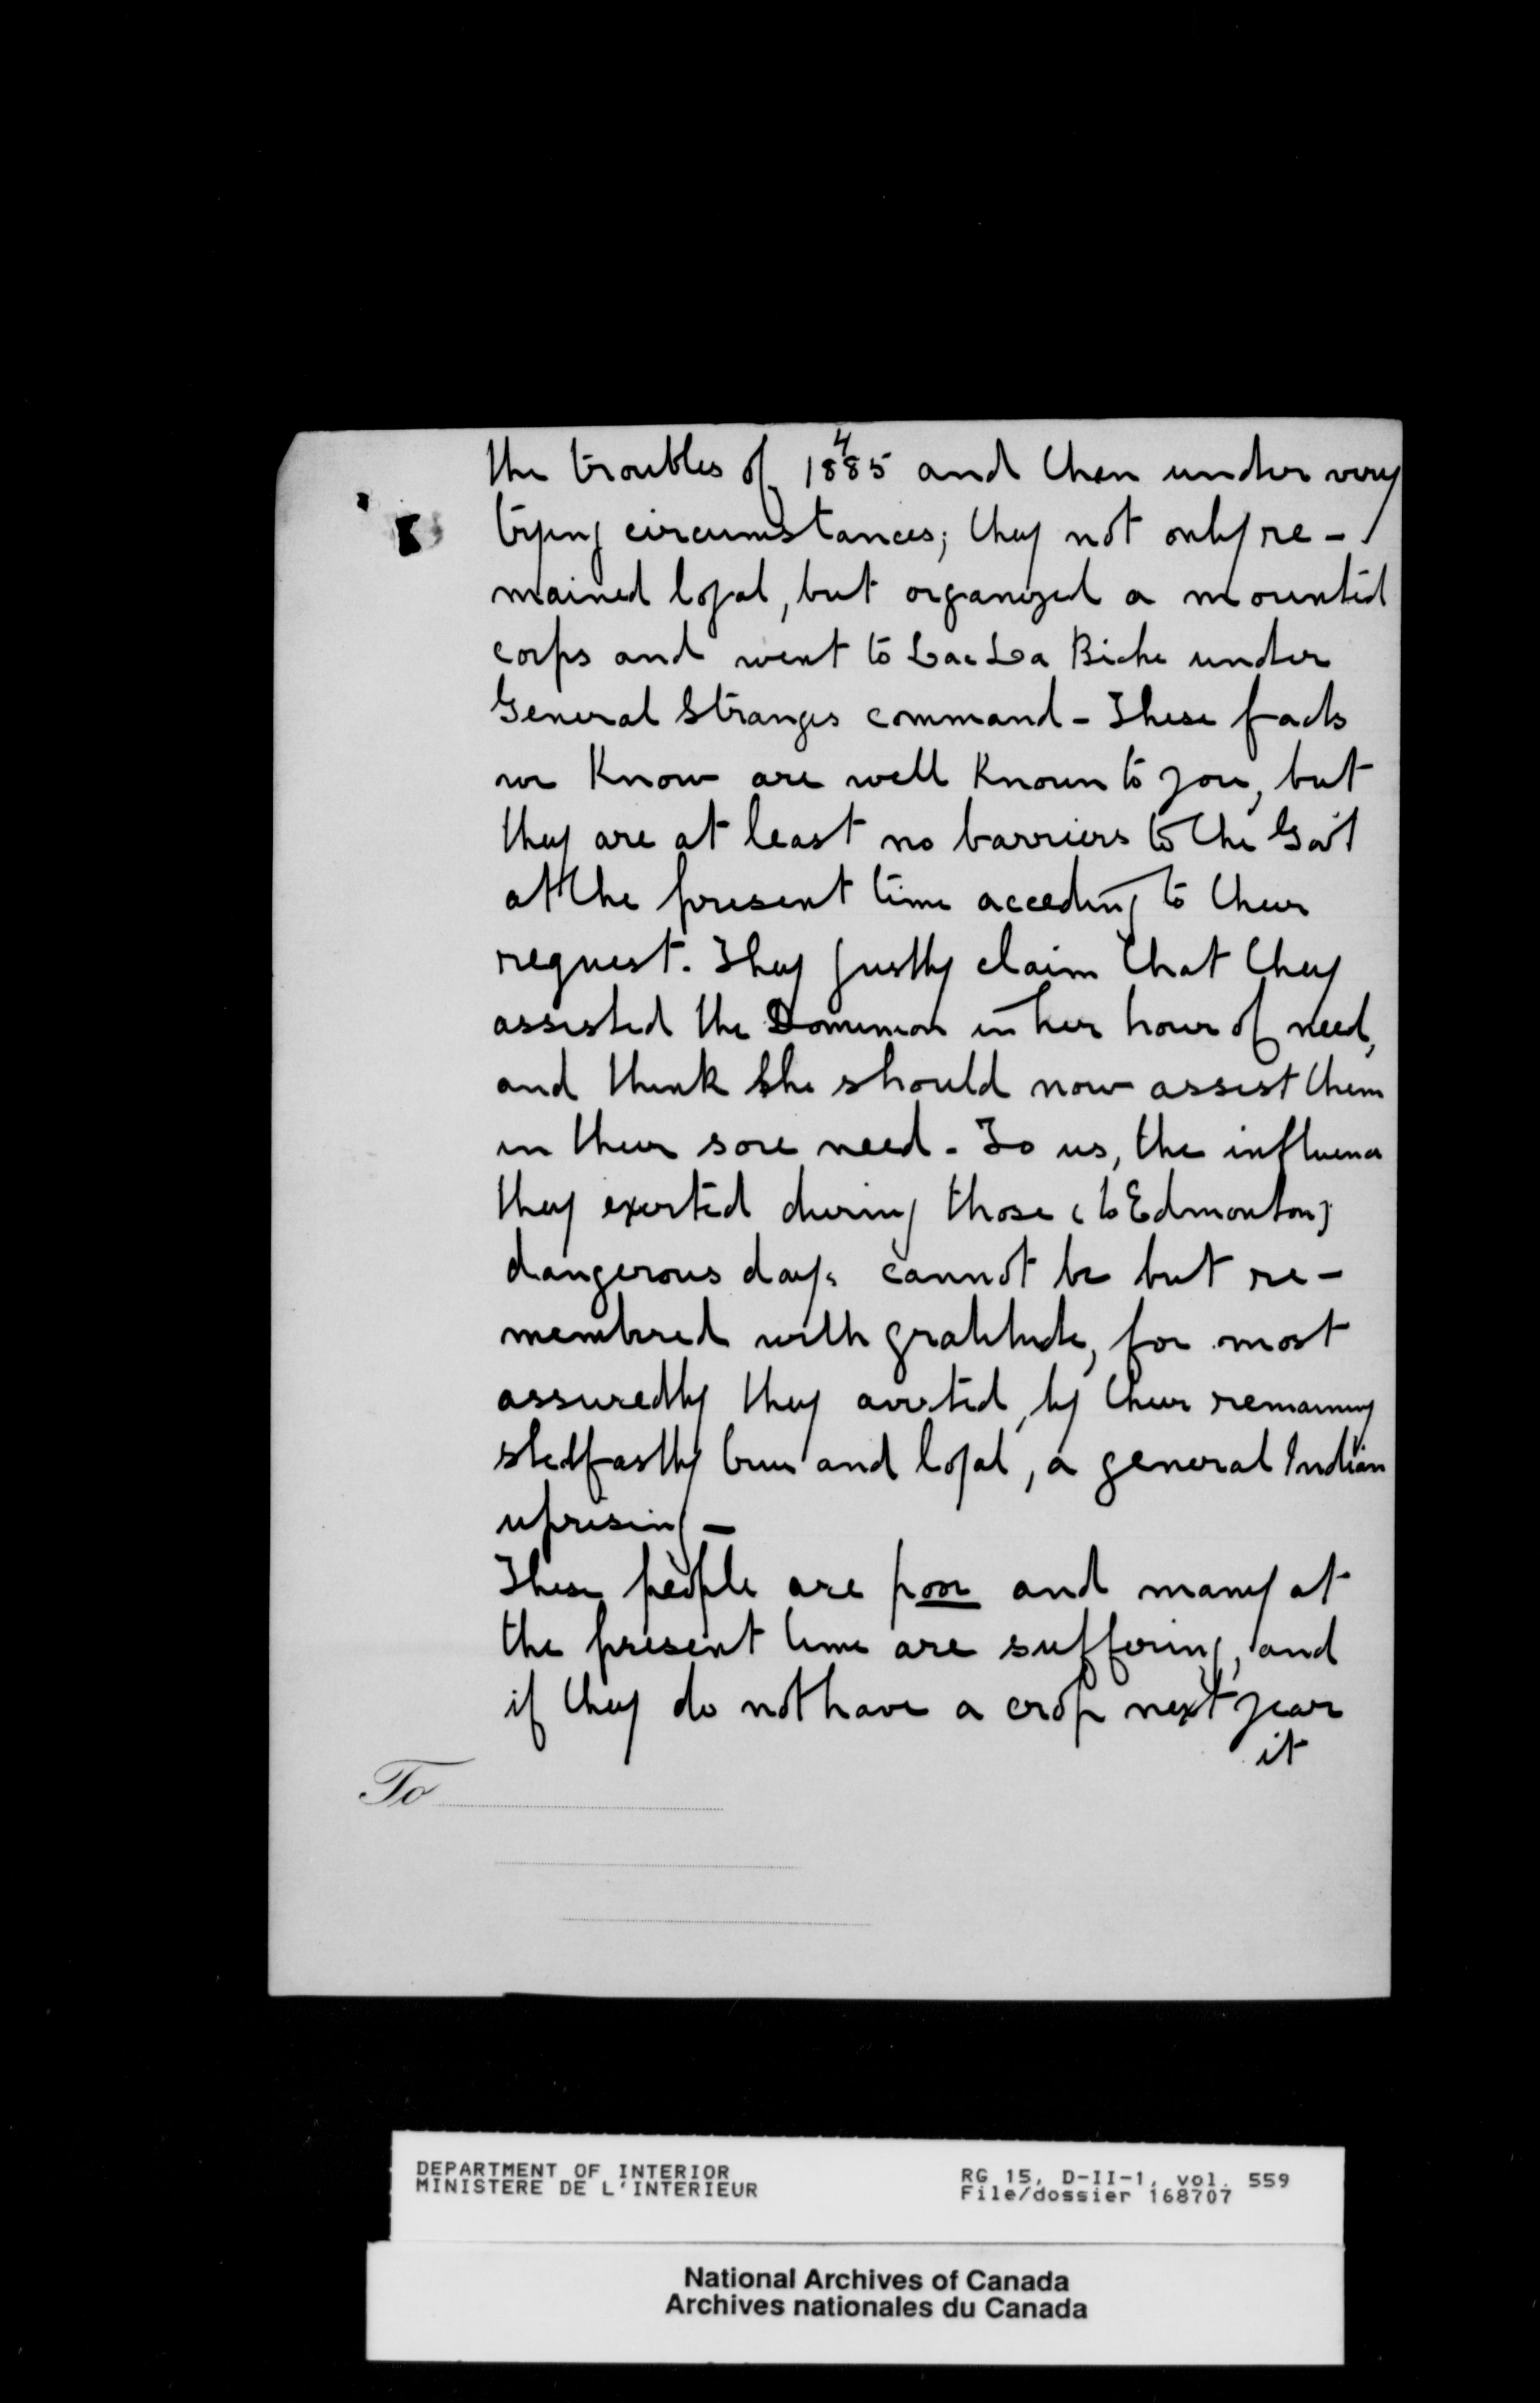 4
the troubles of 1885 and then under very
trying circumstances; they not only re-
mained loyal, but organized a mounted
corps and went to Lac La Biche under
General Stranges command - These facts
we Know are well Known to you, but
they are at least no barriers to the Gov't
at the present time acceding to their
request. They justly claim that they
assisted the Dominion in her hour of need,
and think she should now assist them
in their sore need - To us, the influence
they exerted during those (to Edmonton)
dangerous days cannot be but re-
membered with gratitude, for most
assuredly they averted, by their remaining
stedfastly true and loyal, a general Indian
uprising -
These people are poor and many at
the present time are suffering, and
if they do not have a crop next year
it
To
DEPARTMENT OF INTERIOR
MINISTERE DE L'INTERIEUR
RG 15, D-II-1, vol. 559
File/dossier 168707
National Archives of Canada
Archives nationales du Canada